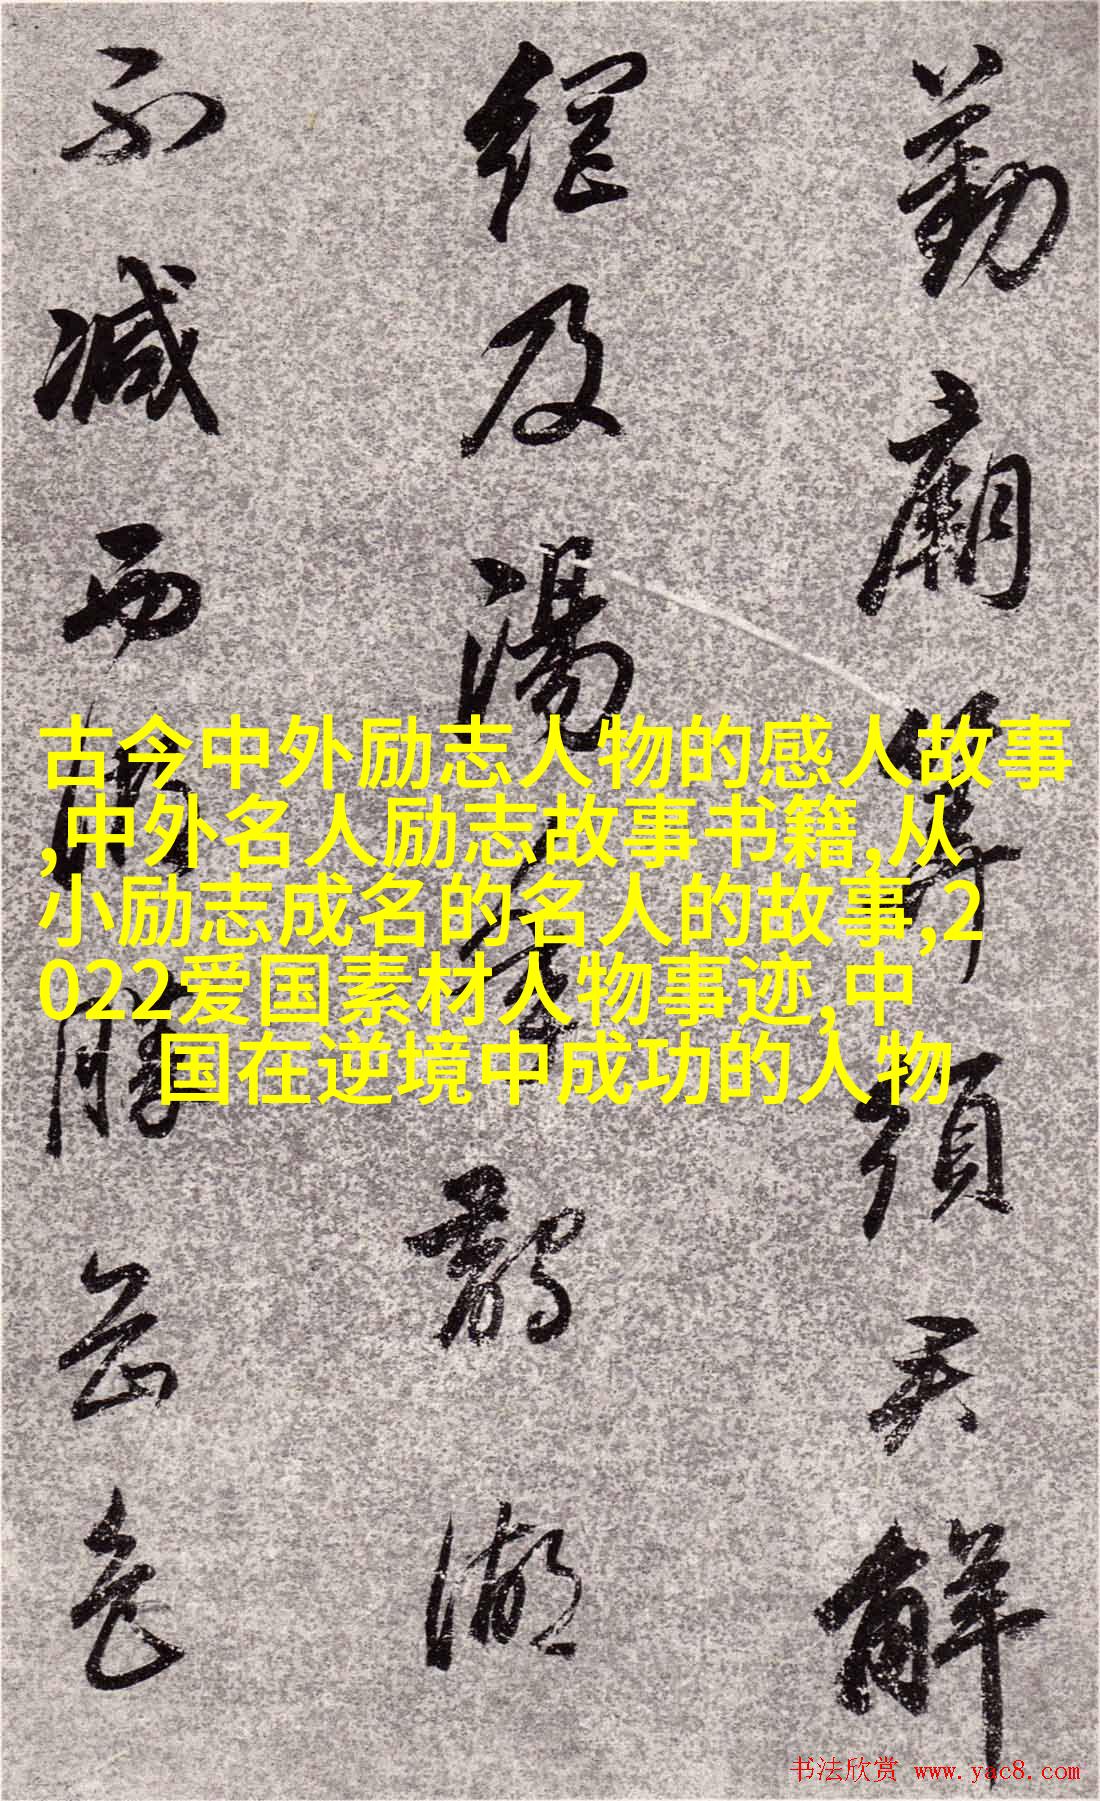 勤廟算須君解
網及湯年鵲湖
不減西湖勝岳色
古今中外励志人物的感人故事
,中外名人励志故事书籍,从
小励志成名的名人的故事,2
022爱国素材人物事迹,中
国在逆境中成功的人物
书法欣赏 www.yac8.com